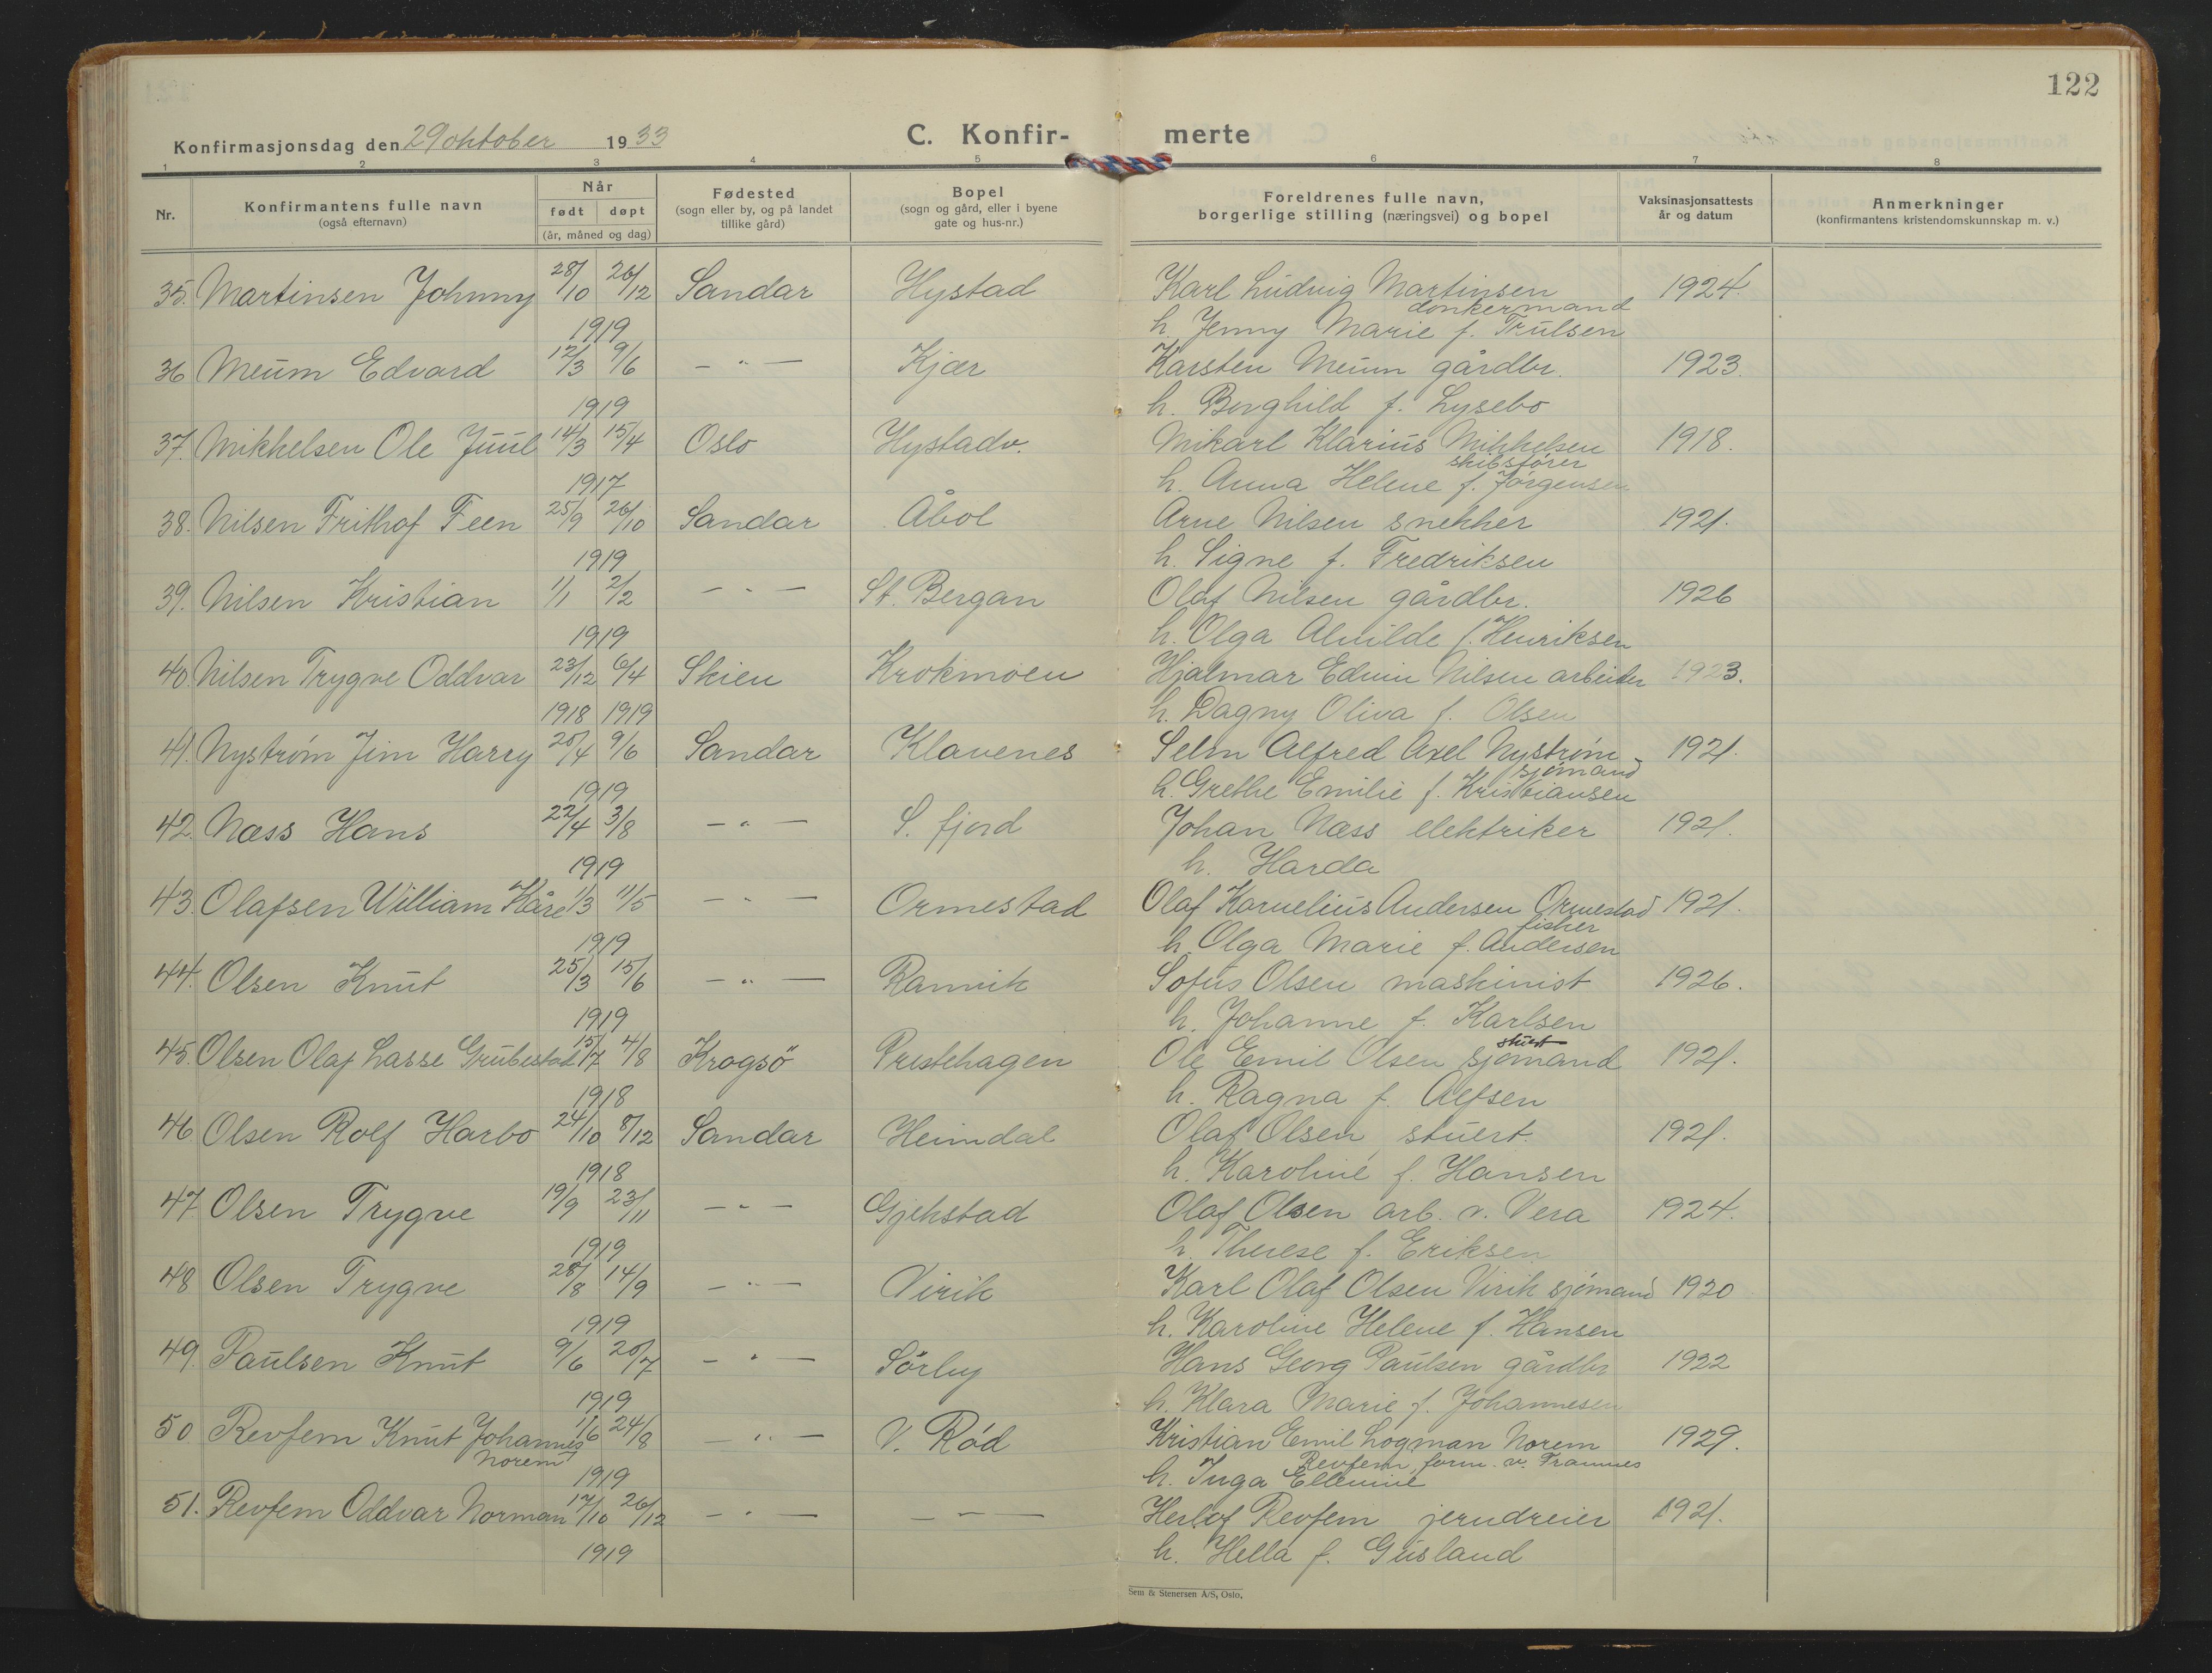 122
Konfirmasjonsdag den 29 oktober 1933
C. Konfir- merte
1 2 3 4 5 6 7 8
Nr.
Konfirmantens fulle navn
(også efternavn)
Når
født døpt
(år, måned og dag)
Fødested
(sogn eller by, og på landet
tillike gård)
Bopel
(sogn og gård, eller i byene
gate og hus-nr.)
Foreldrenes fulle navn,
borgerlige stilling (næringsvei) og bopel
Vaksinasjonsattests
år og datum
Anmerkninger
(konfirmantens kristendomskunnskap m. v.)
35. Martinsen Johnny 28/10 26/12 Sandar Hystad Karl Ludvig Martinsen 1924.
donkermand
1919 h. Jenny Marie f. Trulsen
36 Meum Edvard 12/3 9/6 — " — Kjær Karsten Meum gårdbr. 1923.
1919 h. Borghild f. Lysebo
37. Mikkelsen Ole Juul 14/3 15/4 Oslo Hystadv. Mikarl Klarius Mikkelsen 1918.
skibsfører
1917 h. Anna Helene f. Jörgensen
38. Nilsen Frithof Feen 25/9 26/10 Sandar Åbol Arne Nilsen snekker 1921.
1919 h. Signe f. Fredriksen
39. Nilsen Kristian 1/1 2/2 — " — St. Bergan Olaf Nilsen gårdbr. 1926
1919 h. Olga Alvilde f. Henriksen
40. Nilsen Trygve Oddvar 23/12 6/4 Skien Krokmoen Hjalmar Edvin Nilsen arbeider 1923.
1918 1919 h. Dagny Oliva f. Olsen
41. Nyström Jim Harry 20/4 9/6 Sandar Klavenes Selm Alfred Axel Nyström 1921.
sjömand
1919 h. Grethe Emilie f. Kristiansen
42. Næss Hans 22/4 3/8 — " — S. fjord Johan Næss elektriker 1921.
1919 h. Harda
43. Olafsen William Kåre 1/3 11/5 — " — Ormestad Olaf Kornelius Andersen Ormestad 1921.
fisker
1919 h. Olga Marie f. Andersen
44. Olsen Knut 25/3 15/6 — " — Ranvik Sofus Olsen maskinist 1926.
1919 h. Johanne f. Karlsen
stuert
45. Olsen Olaf Lasse Grubestad 15/7 4/8 Krogsö Prestehagen Ole Emil Olsen sjömand 1921.
1918 h. Ragna f. Alfsen
46 Olsen Rolf Harbo 24/10 8/12 Sandar Heimdal Olaf Olsen stuert. 1921.
1918 h. Karoline f. Hansen
47. Olsen Trygve 19/9 23/11 — " — Gjekstad Olaf Olsen arb. v. Vera 1924.
1919 h. Therese f. Eriksen
48 Olsen Trygve 28/8 14/9 — " — Virik Karl Olaf Olsen Virik sjömand 1920
1919 h. Karoline Helene f. Hansen
49. Paulsen Knut 9/6 20/7 — " — Sörby Hans Georg Paulsen gårdbr 1922
1919 h. Klara Marie f. Johannesen
50 Revfem Knut Johannes 1/6 24/8 — " — V. Rød Kristian Emil Logman Norem 1929.
Norem Revfem, form. v. Framnes
1919 h. Inga Ellemine
51. Revfem Oddvar Norman 17/10 26/12 — " — — " — Herlof Revfem jerndreier 1921.
1919 h. Hella f. Gusland
Sem & Stenersen A/S, Oslo.